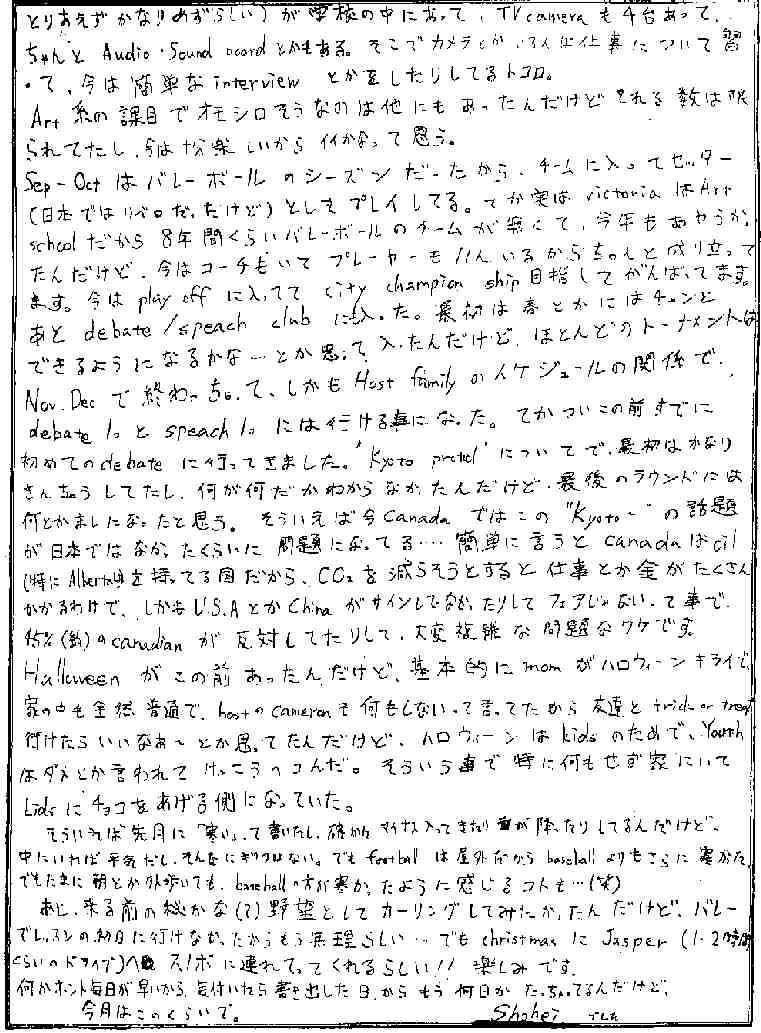 とりあえずかなり(めずらしい)が学校の中にあって、TV cameraも4台あって、
ちゃんと Audio・Sound boardとかもある。そこでカメラとかいろんな仕事について習
って、今は簡単なinterview とかをしたりしてるトコロ。
Art 系の課目でオモシロそうなのは他にもあったんだけどとれる数は限
られてたし、今は十分楽しいからイイかなって思う。
Sep-Oct はバレーボールのシーズンだったから、チームに入ってセッター
(日本ではリベロだったけど)としてプレイしてる。てか実は victoria は Art
schoolだから 8年間くらいバレーボールのチームが無くて、今年もあやうか
たんだけど、今はコーチもいて プレーヤーも11人いるからちゃんと成り立って
ます。今は play off に入ってて city champion ship 目指してがんばってます。
あと debate/speach club に入った。最初は春とかにはチャンと
できるようになるかな…とか思って入ったんだけど、ほとんどのトーナメントは
Nov. Dec で終わっちゃって、しかも Host family のスケジュールの関係で、
debate 1つと speach 1つには行ける事になった。てかついこの前すでに
初めてのdebate に行ってきました。"Kyoto protcol"についてで、最初はかなり
きんちょうしてたし、何が何だかわからなかったんだけど、最後のラウンドには
何とかましになったと思う。そういえば今Canada ではこの "Kyoto~" の話題
が日本ではなかったくらいに 問題になってる… 簡単に言うと canadaはoil
(特にAlberta州)を持ってる国だから、CO2を減らそうとすると仕事とか金がたくさん
かかるわけで、しかもU.S.AとかChinaがサインしてなかったりしてフェアじゃないって事で、
45%(約)のcanadian が 反対してたりして、大変複雑な問題なワケです。
Halloween がこの前あったんだけど、基本的にmomがハロウィーンキライで、
家の中も全然普通で、hostのcameronも何もしないって言ってたから 友達とtrick or treat
行けたらいいなあ~とか思ってたんだけど、ハロウィーンは kids のためで、Youth
はダメとか言われて けっこうヘコんだ。そういう事で特に何もせず家にいて
kids にチョコをあげる側になっていた。
そういえば先月に「寒い」って書いたし、確かにマイナス入ってきたり雪が降ったりしてるんだけど、
中にいれば平気だし、そんなにキツクはない。でもfootball は屋外だからbaseballよりもさらに寒かった。
でもたまに朝とか外歩いても、baseballの方が寒かったように感じるコトも…(笑)
あと、来る前の秘かな(?)野望としてカーリングしてみたかったんだけど、バレー
でレッスンの初日に行けなかったからもう無理らしい… でも christmas に Jasper (1~2時間
くらいのドライブ)へ スノボに連れてってくれるらしい!! 楽しみです。
何かホント毎日が早いから、気付いたら書き出した日からもう何日かたっちゃってるんだけど、
今月はこのくらいで。 Shohei でした